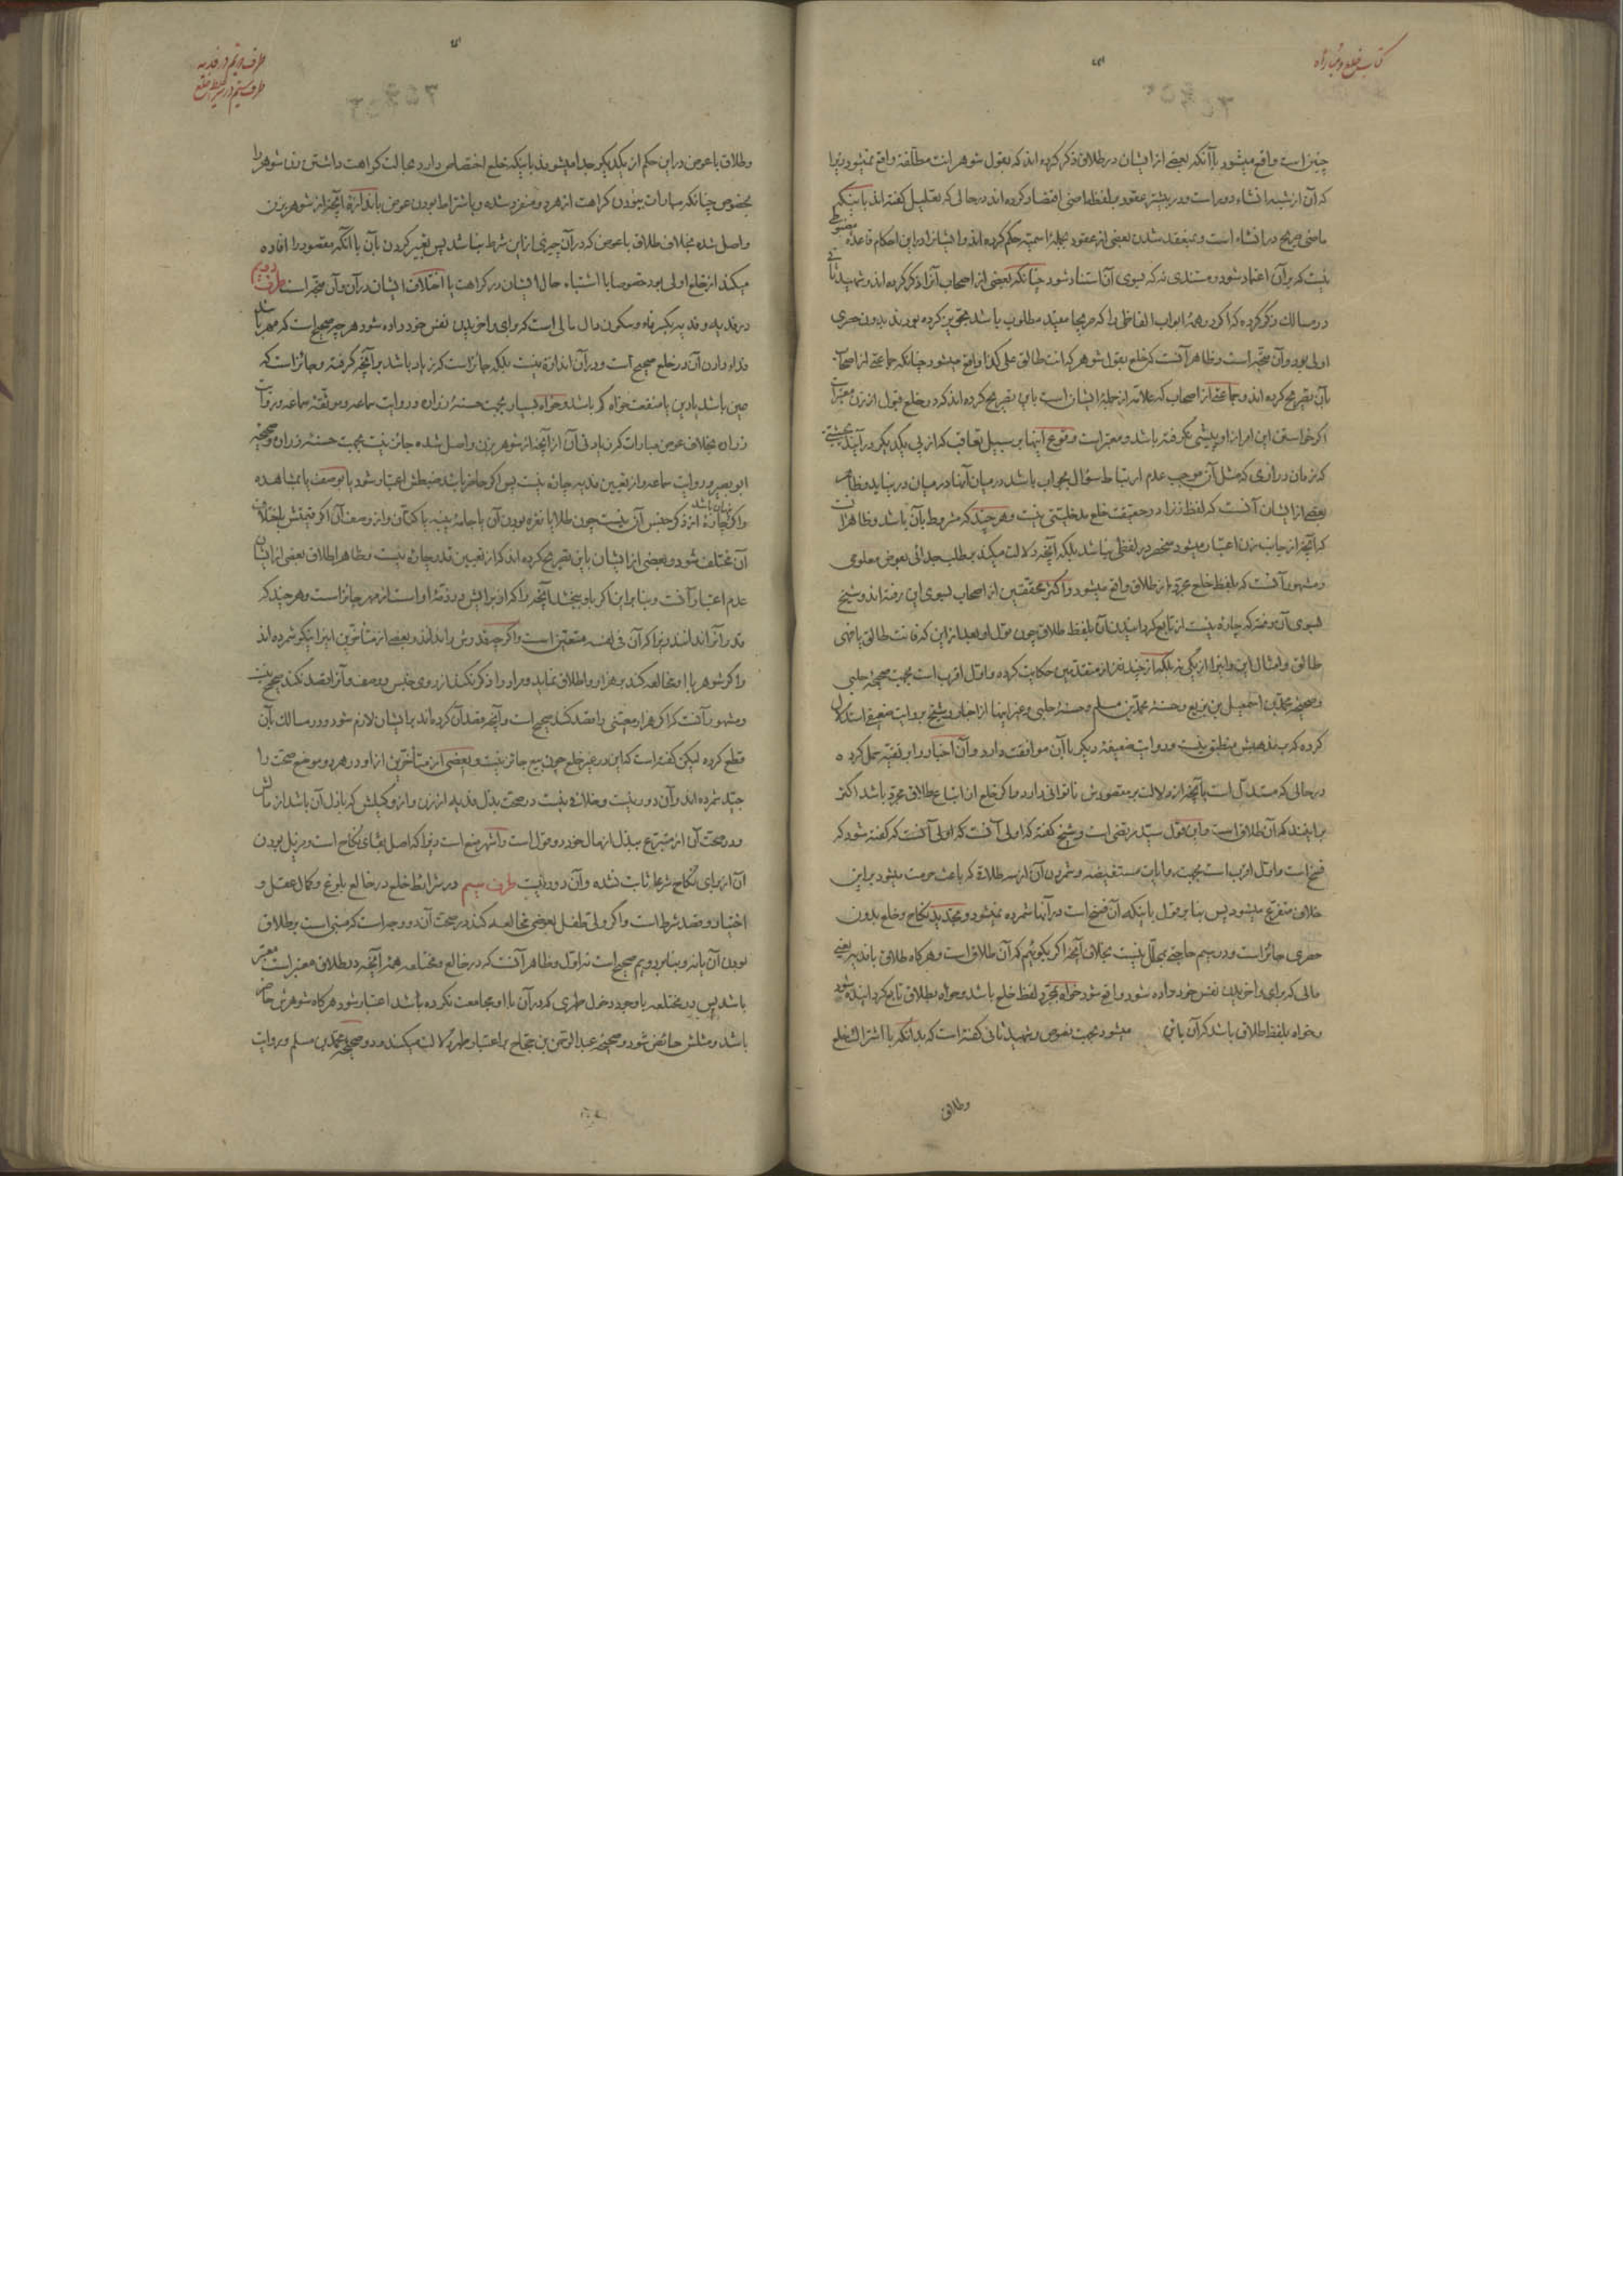 کتاب خلع و مباراه
چنین است واقع میشود با آنکه بعضی از ایشان در طلاق ذکر کرده اند که بقول شوهر انت مطلقة واقع نمیشود زیرا
که آن از شبه انشاء دور است و در بیشتر عقود بر لفظ ماضی اقتصار کرده اند در حالی که تعلیل گفته اند باینکه
ماضی صریح در انشاء است و بمنعقد شدن بعضی از عقود بجملهٔ اسمیه حکم کرده اند و ایشانرا در این احکام قاعدهٔ مضبوطی
نیست که بر آن اعتماد شود و مستندی نه که بسوی آن استناد شود چنانکه بعضی از اصحاب آنرا ذکر کرده اند و شهید ثانی
در مسالک ذکر کرده که اگر در همهٔ ابواب الفاظی را که صریحا مفید مطلوب باشد تجویز کرده بودند بدون حصری
اولی بود و آن متجه است و ظاهر آنست که خلع بقول شوهر که انت طالق علی کذا واقع میشود چنانکه جماعتی از اصحاب
بآن تصریح کرده اند و جماعتی از اصحاب که علامه از جملهٔ ایشان است باین تصریح کرده اند که در خلع قبول از زن معتبر است
اگر خواستن این امر از او پیشی نگرفته باشد و معتبر است وقوع اینها بر سبیل تعاقب که از پی یکدیگر در آیند بحیثیتی
که زمان درازی که مثل آن موجب عدم ارتباط سؤال بجواب باشد در میان آنها در میان در نیاید و ظاهر
بعضی از ایشان آنست که لفظ زنرا در حقیقت خلع مدخلیتی نیست و هر چند که مشروط بآن باشد و ظاهرا آنست
که آنچه از جانب زن اعتبار میشود منحصر در لفظی نباشد بلکه آنچه دلالت میکند بر طلب جدائی بعوض معلومی
و مشهور آنست که بلفظ خلع مجرد از طلاق واقع میشود و اکثر محققین از اصحاب بسوی این رفته اند و شیخ
بسوی آن رفته که چاره نیست از تابع کردانیدن آن بلفظ طلاق چون قول او بعد از این که فانت طالق یا هی
طالق و امثال این و اینرا از یکی نه بلکه از چند نفر از متقدمین حکایت کرده و اول اقرب است بجهت صحیحهٔ حلبی
و صحیحهٔ محمد بن اسمعیل بن بزیع و حسنهٔ محمد بن مسلم و حسنهٔ حلبی و غیر اینها از اخبار و شیخ بروایت ضعیفی استدلال
کرده که بمذهبش منطبق نیست و روایت ضعیفهٔ دیگر با آن موافقت دارد و آن اخبار را بر تقیه حمل کرده
در حالی که مستدل است بآنچه از دلالت بر مقصودش ناتوانی دارد و ما که خلع از اتباع طلاق مجرد باشد اکثر
بر اینند که آن طلاق است و این قول سید مرتضی است و شیخ گفته که اولی آنست که اولی آنست که گفته شود که
فسخ است و اول اقرب است بجهت روایات مستفیضه و شمردن آن از سه طلاق که باعث حرمت میشود بر این
خلاف متفرع میشود پس بنا بر قول باینکه آن فسخ است در آنها شمرده نمیشود و تجدید نکاح و خلع بدون
حصری جائز است و در سیم حاجتی بمحلل نیست بخلاف آنچه اگر بگوئیم که آن طلاق است و هر گاه طلاق با فدیه یعنی
مالی که برای واخریدن نفس خود داده شود واقع شود خواه بمجرد لفظ خلع باشد و خواه بطلاق تابع کردانیده شود
و خواه بلفظ طلاق باشد که آن بائن میشود بجهت نصوص و شهید ثانی گفته است که بدانکه با اشتراک خلع
وطلاق
طرف دویم در فدیه
طرف سیم در شرایط خلع
وطلاق با عوض در این حکم از یکدیگر جدا میشوند باینکه خلع اختصاص دارد بحالت کراهت داشتن زن شوهر را
بخصوص چنانکه مبارات ببودن کراهت از هر دو منفرد شده و باشتراط بودن عوض باندازهٔ آنچه از شوهر بزن
واصل شده بخلاف طلاق با عوض که در آن چیزی از این شروط نباشد پس تعبیر کردن بآن با آنکه مقصود را افاده
میکند از خلع اولی بود خصوصا با اشتباه حال ایشان در کراهت یا اختلاف ایشان در آن و آن متجه است طرف دویم
در فدیه و فدیه بکسر فاء و سکون دال مالی است که برای واخریدن نفس خود داده شود هر چه صحیح است که مهر باشد
فداء دادن آن در خلع صحیح است و در آن اندازهٔ نیست بلکه جائز است که زیاد باشد بر آنچه گرفته و جائز است که
عین باشد یا دین یا منفعت خواه کم باشد و خواه بسیار بجهت حسنهٔ زراره و روایت سماعه و موثقهٔ سماعه و روایت
زراره بخلاف عوض مبارات که زیادتی آن از آنچه از شوهر بزن واصل شده جائز نیست بجهت حسنهٔ زراره و صحیحهٔ
ابو بصیر و روایت سماعه و از تعیین فدیه چاره نیست پس اگر حاضر باشد ضبطش اعتبار شود یا بوصف یا بمشاهده
و اگر غائب باشد چارهٔ از ذکر جنس آن نیست چون طلا یا نقره بودن آن یا جامهٔ پنبه یا کتان و از وصف آن اگر قیمتش باختلاف
آن مختلف شود و بعضی از ایشان باین تصریح کرده اند که از تعیین قدر چاره نیست و ظاهر اطلاق بعضی از ایشان
عدم اعتبار آنست و بنا بر این اگر باو ببخشد آنچه را که از برایش در ذمهٔ او است از مهر جائز است و هر چند که
قدر آنرا ندانند زیرا که آن فی نفسه متعین است و اگر چه قدرش را ندانند و بعضی از متأخرین اینرا نیکو شمرده اند
و اگر شوهر با او مخالعه کند بهزار و اطلاق نماید و مراد را ذکر نکند از روی جنس و وصف و آنرا قصد نکند صحیح نیست
و مشهور آنست که اگر هزار معینی را قصد کنند صحیح است و آنچه قصد آن کرده اند بر ایشان لازم شود و در مسالک بآن
قطع کرده لیکن گفته است که این در غیر خلع چون بیع جائز نیست و بعضی از متأخرین از او در هر دو موضع صحت را
جید شمرده اند و آن دور نیست و خلافی نیست در صحت بذل فدیه از زن و از وکیلش که باذل آن باشد از مالش
و در صحت آن از متبرع ببذل از مال خود دو قول است و اشهر منع است زیرا که اصل بقای نکاح است و مزیل بودن
آن از برای نکاح شرعا ثابت نشده و آن دور نیست طرف سیم در شرائط خلع در خالع بلوغ و کمال عقل و
اختیار و قصد شرط است و اگر ولی طفل بعوضی مخالعه کند در صحت آن دو وجه است که مبنی است بر طلاق
بودن آن یا نه و بنا بر دویم صحیح است نه اول و ظاهر آنست که در خالع و مختلعه همهٔ آنچه در طلاق معتبر است معتبر
باشد پس در مختلعه با وجود دخول طهری که در آن با او مجامعت نکرده باشد اعتبار شود هر گاه شوهرش حاضر
باشد و مثلش حائض شود و صحیحهٔ عبد الرحمن بن حجاج بر اعتبار طهر دلالت میکند و در صحیحهٔ محمد بن مسلم و روایت